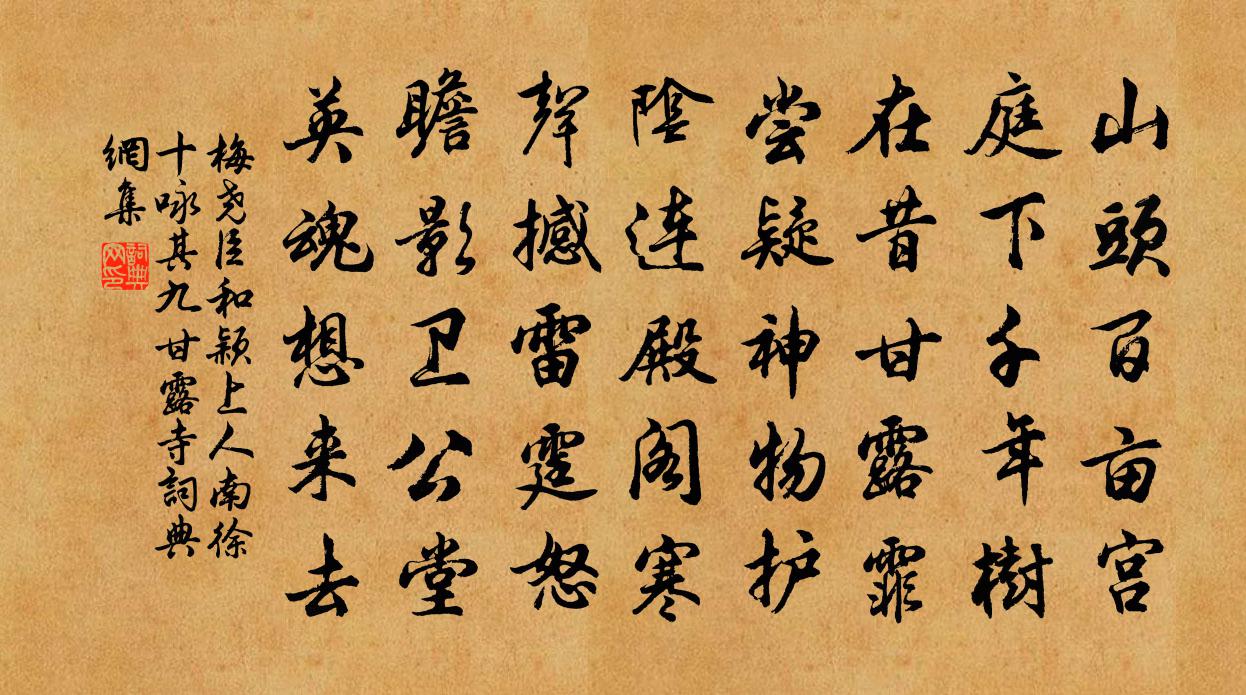 山頭百亩宫
庭下千年樹
在昔甘露霏
尝疑神物护
陰連殿阁寒
聲撼雷霆怒
瞻影卫公堂
英魂想来去
梅尧臣和颖上人南徐
十咏其九甘露寺詞典
網集
詞典
网印